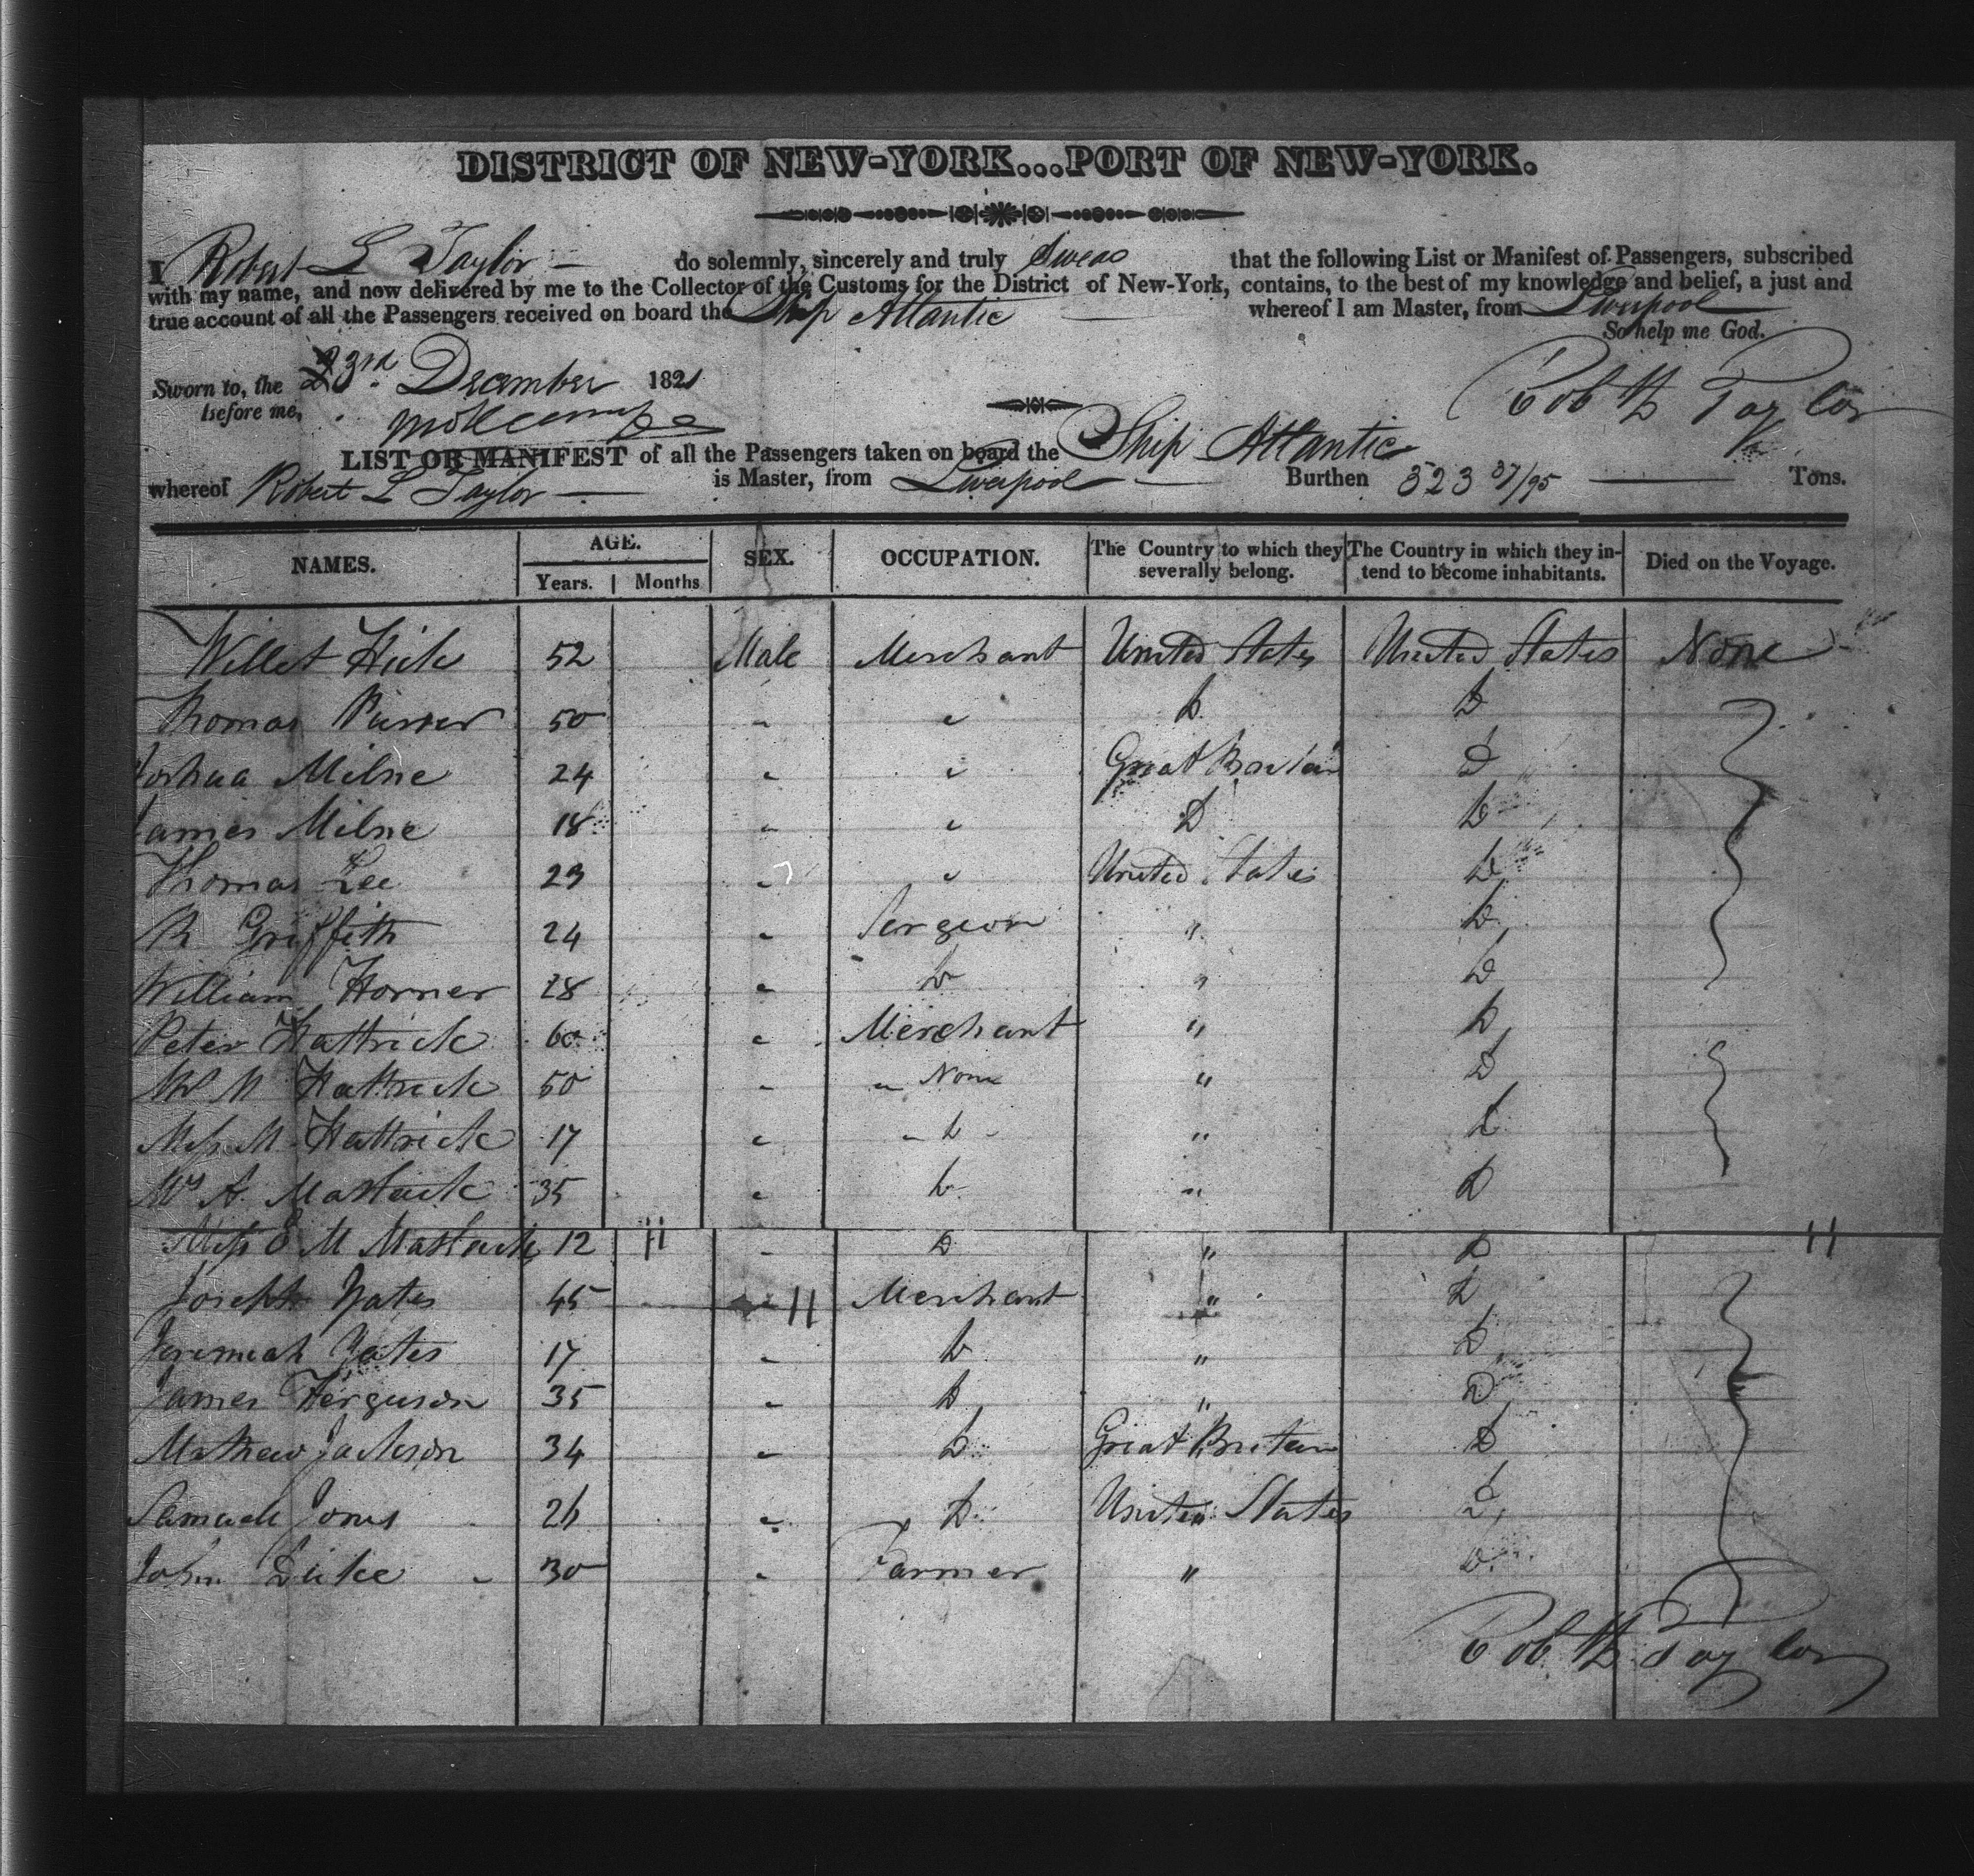 DISTRICT OF NEW-YORK...PORT OF NEW-YORK.
I Robert L Taylor — do solemnly, sincerely and truly Swear that the following List or Manifest of Passengers, subscribed
with my name, and now delivered by me to the Collector of the Customs for the District of New-York, contains, to the best of my knowledge and belief, a just and
true account of all the Passengers received on board the Ship Atlantic — whereof I am Master, from Liverpool
So help me God.
Sworn to, the 23rd December 1821
before me,
Robt L Taylor
LIST OR MANIFEST of all the Passengers taken on board the Ship Atlantic
whereof Robert L Taylor — is Master, from Liverpool — Burthen 323 37/95 — Tons.
NAMES. AGE. Years. Months SEX. OCCUPATION. The Country to which they severally belong. The Country in which they intend to become inhabitants. Died on the Voyage.
Willet Hick 52 Male Merchant United States United States None
Thomas 50 " " Do Do
Joshua Milne 24 " " Great Britain Do
James Milne 18 " " Do Do
Thomas Lee 23 " " United States Do
Griffith 24 " Surgeon " Do
William Horner 28 " Do " Do
Peter Hattrick 60 " Merchant " Do
M Hattrick 50 " None " Do
Miss M Hattrick 17 " Do " Do
Mrs A. 35 " Do " Do
Miss E M 12 " Do " Do
Joseph Yates 45 " Merchant " Do
Jeremiah Yates 17 " Do " Do
James Ferguson 35 " Do " Do
Mathew Jackson 34 " Do Great Britain Do
Samuel Jones 26 " Do United States Do
John Duke 30 " Farmer " Do
Robt L Taylor